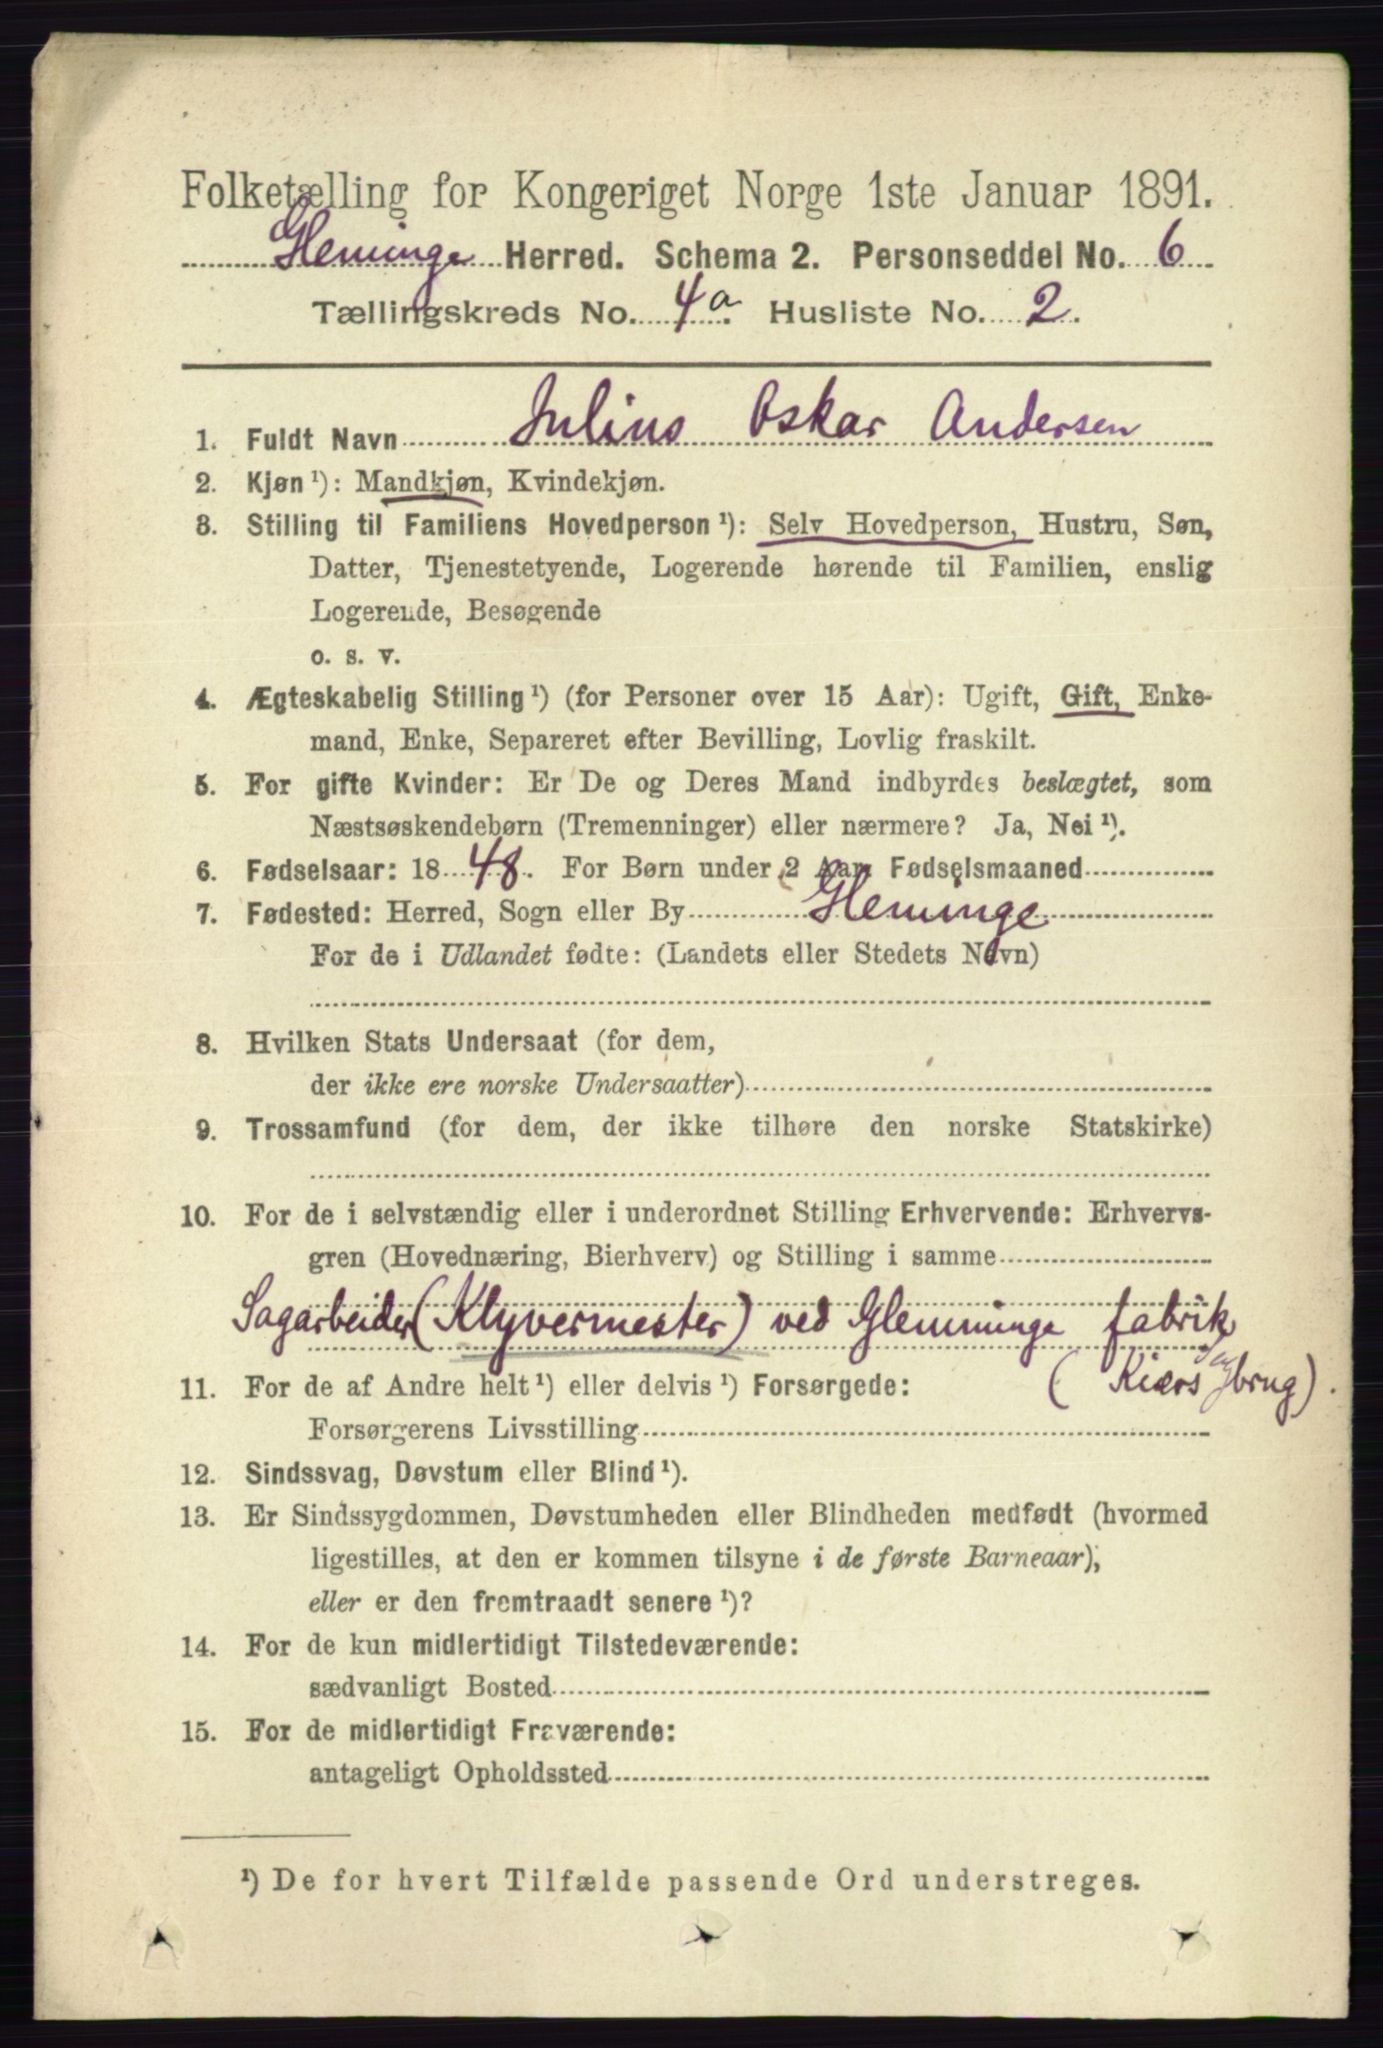 Folketælling for Kongeriget Norge 1ste Januar 1891.
Gleminge Herred. Schema 2. Personseddel No. 6
Tællingskreds No. 4a. Husliste No. 2.
1. Fuldt Navn Julius Oskar Andersen
2. Kjøn ¹): Mandkjøn, Kvindekjøn.
3. Stilling til Familiens Hovedperson ¹): Selv Hovedperson, Hustru, Søn,
Datter, Tjenestetyende, Logerende hørende til Familien, enslig
Logerende, Besøgende
o. s. v.
4. Ægteskabelig Stilling ¹) (for Personer over 15 Aar): Ugift, Gift, Enke-
mand, Enke, Separeret efter Bevilling, Lovlig fraskilt.
5. For gifte Kvinder: Er De og Deres Mand indbyrdes beslægtet, som
Næstsøskendebørn (Tremenninger) eller nærmere? Ja, Nei ¹).
6. Fødselsaar: 1848. For Børn under 2 Aar: Fødselsmaaned
7. Fødested: Herred, Sogn eller By Gleminge
For de i Udlandet fødte: (Landets eller Stedets Navn)
8. Hvilken Stats Undersaat (for dem,
der ikke ere norske Undersaatter)
9. Trossamfund (for dem, der ikke tilhøre den norske Statskirke)
10. For de i selvstændig eller i underordnet Stilling Erhvervende: Erhvervs-
gren (Hovednæring, Bierhverv) og Stilling i samme
Sagarbeider (Klyvermester) ved Glemminge fabrik
(Kiærs Sagbrug).
11. For de af Andre helt ¹) eller delvis ¹) Forsørgede:
Forsørgerens Livsstilling
12. Sindssvag, Døvstum eller Blind ¹).
13. Er Sindssygdommen, Døvstumheden eller Blindheden medfødt (hvormed
ligestilles, at den er kommen tilsyne i de første Barneaar),
eller er den fremtraadt senere ¹)?
14. For de kun midlertidigt Tilstedeværende:
sædvanligt Bosted
15. For de midlertidigt Fraværende:
antageligt Opholdssted
¹) De for hvert Tilfælde passende Ord understreges.